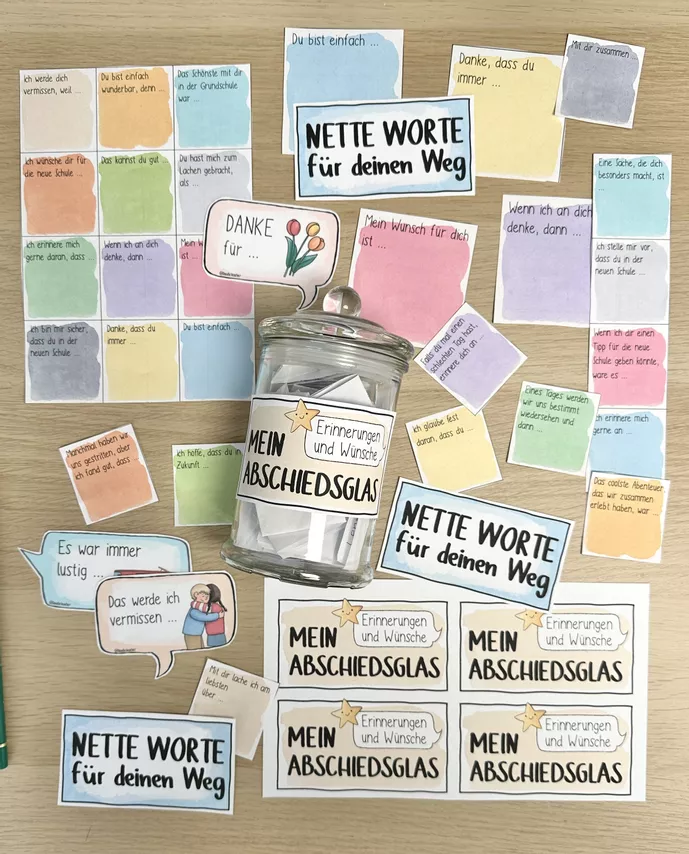 Du bist einfach ...
Danke, dass du
immer ...
Mit dir zusammen ...
Ich werde dich
vermissen, weil ...
Du bist einfach
wunderbar, denn ...
Das Schönste mit dir
in der Grundschule
war ...
NETTE WORTE
für deinen Weg
Ich wünsche dir für
die neue Schule ...
Das kannst du gut ...
Du hast mich zum
Lachen gebracht,
als ...
Eine Sache, die dich
besonders macht, ist
...
DANKE
für ...
Mein Wunsch für dich
ist ...
Wenn ich an dich
denke, dann ...
Ich erinnere mich
gerne daran, dass ...
Wenn ich an dich
denke, dann ...
Mein W
ist ...
Ich stelle mir vor,
dass du in der
neuen Schule ...
Ich bin mir sicher,
dass du in der
neuen Schule ...
Danke, dass du
immer ...
Du bist einfach ...
Falls du mal einen
schlechten Tag hast,
erinnere dich an ...
Wenn ich dir einen
Tipp für die neue
Schule geben könnte,
wäre es ...
Eines Tages werden
wir uns bestimmt
wiedersehen und
dann ...
Ich glaube fest
daran, dass du ...
Ich erinnere mich
gerne an ...
Manchmal haben wir
uns gestritten, aber
ich fand gut, dass ...
Ich hoffe, dass du in
Zukunft ...
Erinnerungen
und Wünsche
MEIN
ABSCHIEDSGLAS
Das coolste Abenteuer,
das wir zusammen
erlebt haben, war ...
NETTE WORTE
für deinen Weg
Es war immer
lustig ...
Das werde ich
vermissen ...
Mit dir lache ich am
liebsten
über ...
Erinnerungen
und Wünsche
MEIN
ABSCHIEDSGLAS
Erinnerungen
und Wünsche
MEIN
ABSCHIEDSGLAS
NETTE WORTE
für deinen Weg
Erinnerungen
und Wünsche
MEIN
ABSCHIEDSGLAS
Erinnerungen
und Wünsche
MEIN
ABSCHIEDSGLAS